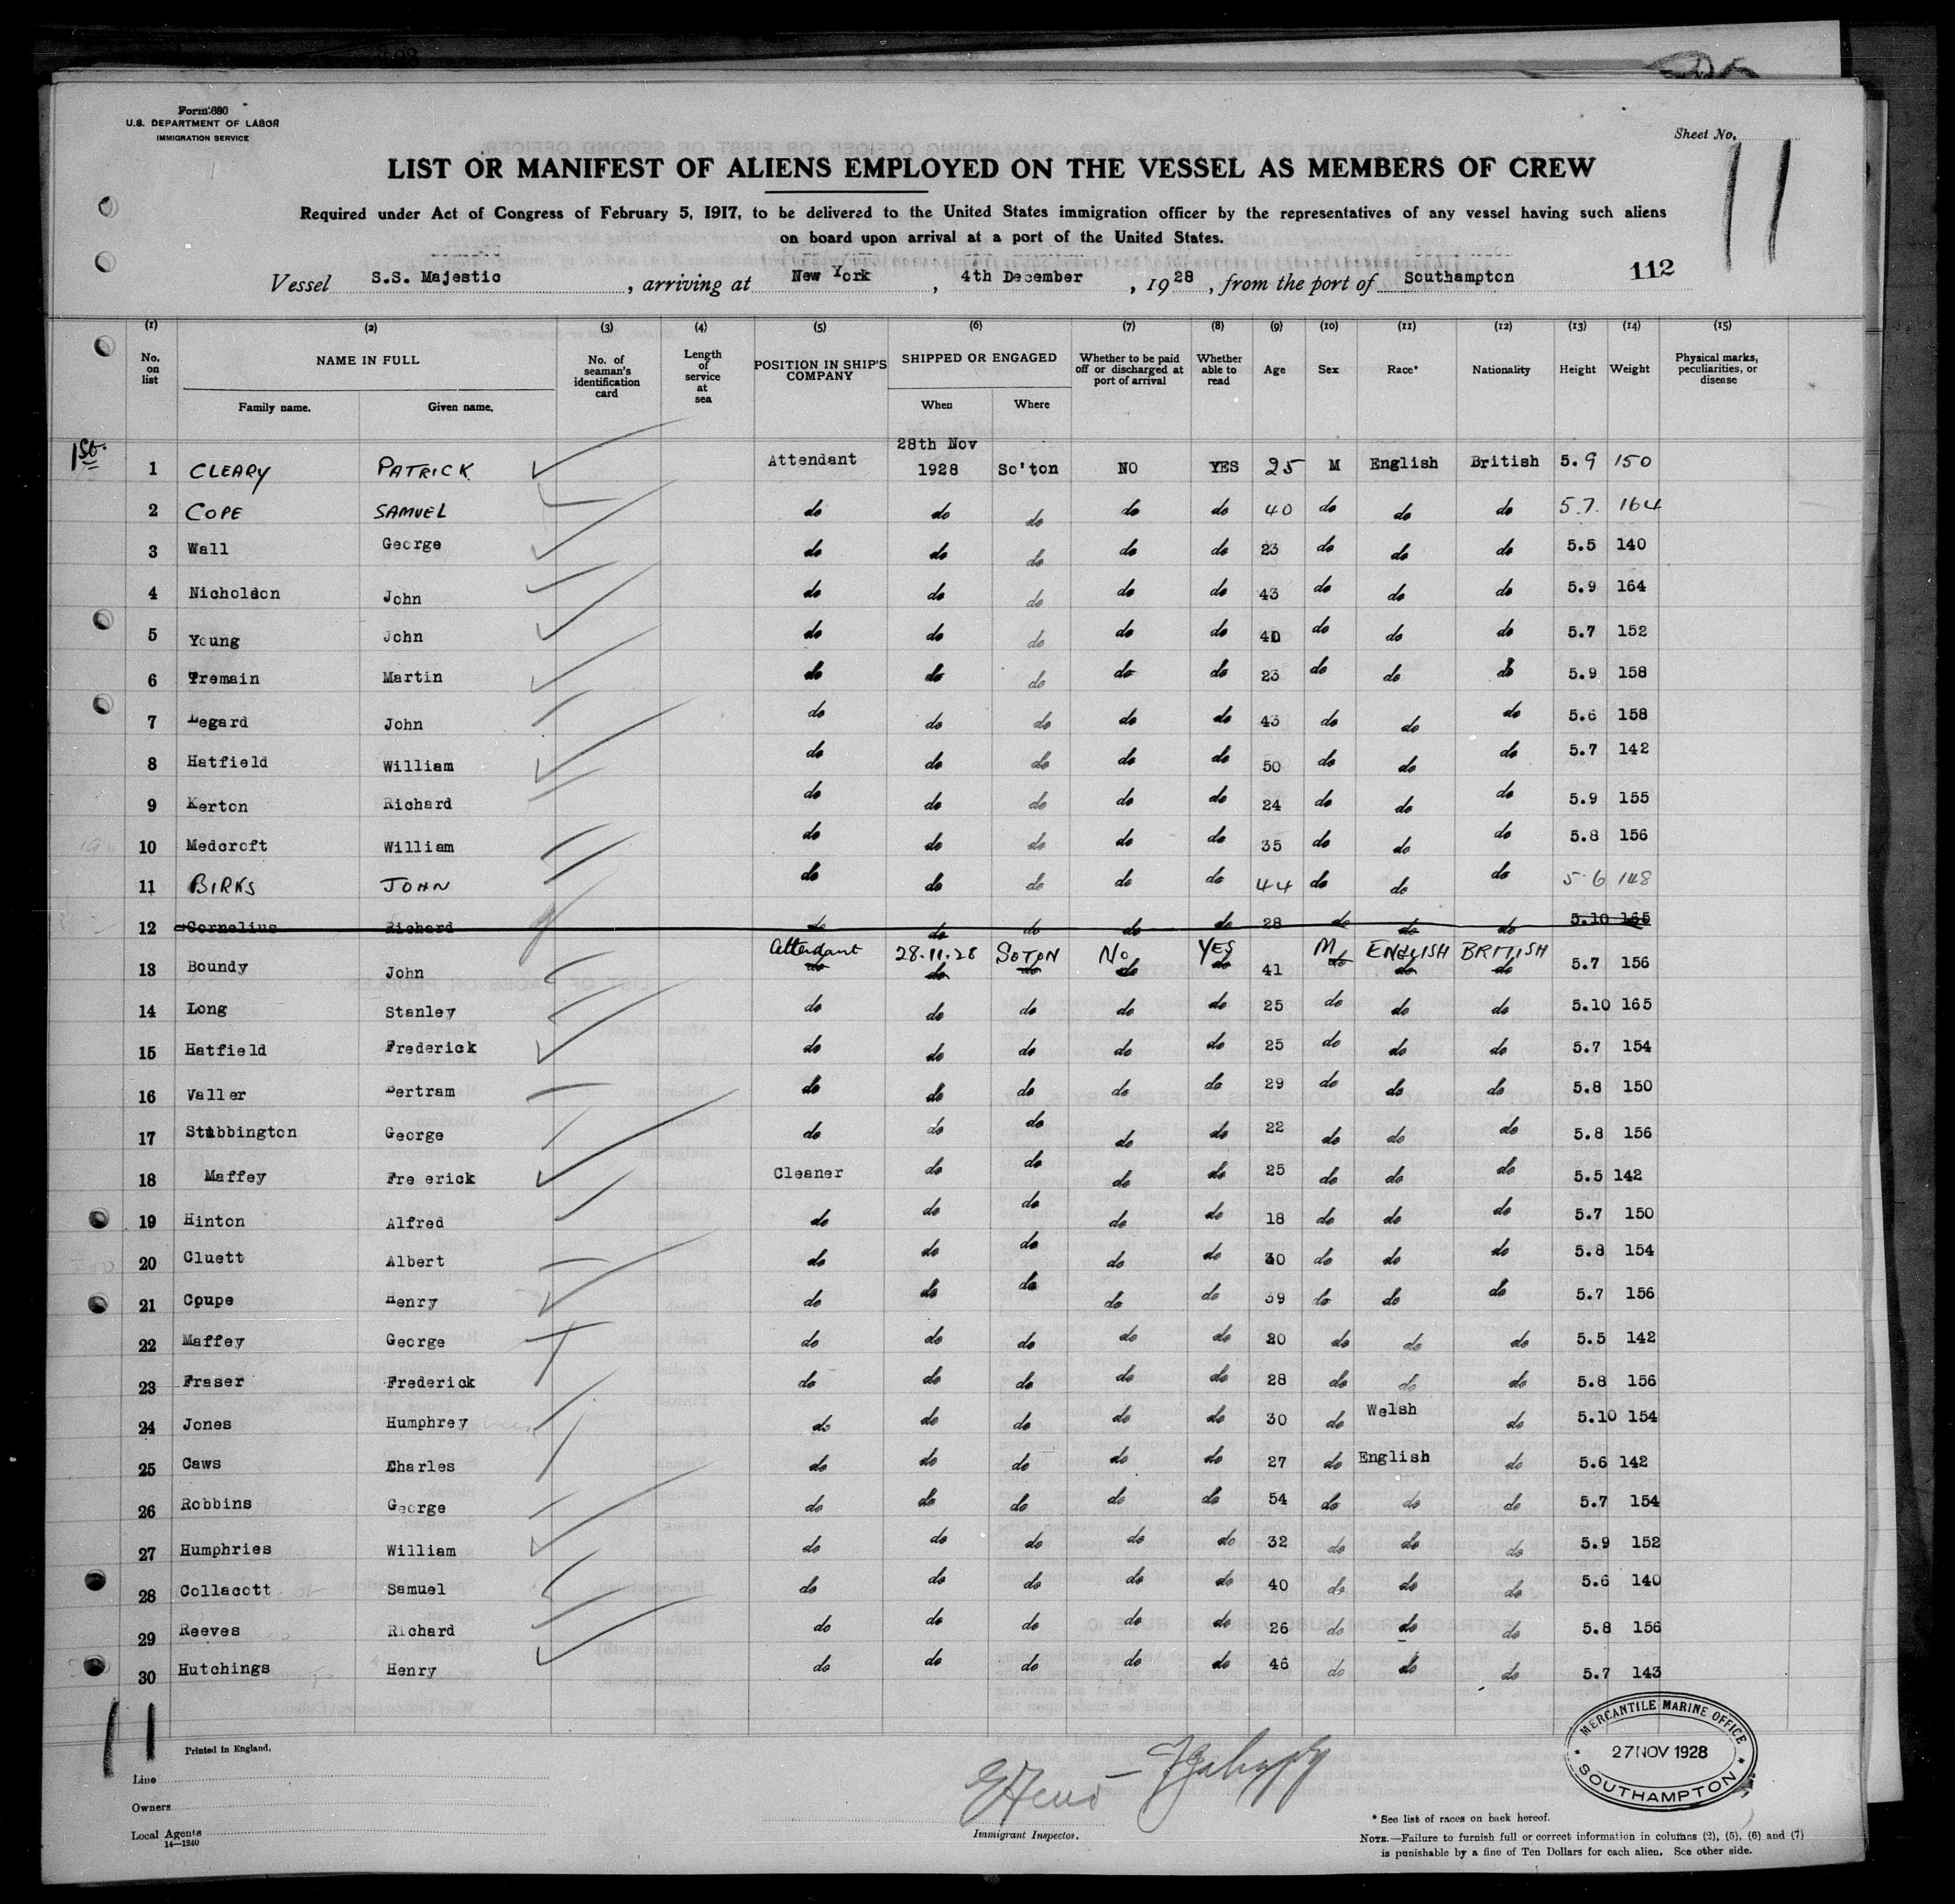 Form 680
U.S. DEPARTMENT OF LABOR
IMMIGRATION SERVICE
Sheet No.
11
LIST OR MANIFEST OF ALIENS EMPLOYED ON THE VESSEL AS MEMBERS OF CREW
Required under Act of Congress of February 5, 1917, to be delivered to the United States immigration officer by the representatives of any vessel having such aliens
on board upon arrival at a port of the United States.
Vessel S.S. Majestic, arriving at New York, 4th December, 1928, from the port of Southampton 112
(1) (2) (3) (4) (5) (6) (7) (8) (9) (10) (11) (12) (13) (14) (15)
No. on list NAME IN FULL Family name. Given name. No. of seaman's identification card Length of service at sea POSITION IN SHIP'S COMPANY SHIPPED OR ENGAGED When Where Whether to be paid off or discharged at port of arrival Whether able to read Age Sex Race* Nationality Height Weight Physical marks, peculiarities, or disease
1st.
1 CLEARY PATRICK Attendant 28th Nov 1928 So'ton NO YES 25 M English British 5.9 150
2 COPE SAMUEL do do do do do 40 do do do 5.7. 164
3 Wall George do do do do do 23 do do do 5.5 140
4 Nicholson John do do do do do 43 do do do 5.9 164
5 Young John do do do do do 40 do do do 5.7 152
6 Tremain Martin do do do do do 23 do do do 5.9 158
7 Legard John do do do do do 43 do do do 5.6 158
8 Hatfield William do do do do do 50 do do do 5.7 142
9 Kerton Richard do do do do do 24 do do do 5.9 155
10 Medcroft William do do do do do 35 do do do 5.8 156
11 BIRKS JOHN do do do do do 44 do do do 5 6 148
12 Cornelius Richard do do do do do 28 do do do 5.10 165
Attendant 28.11.28 SOTON No YES M ENGLISH BRITISH
13 Boundy John do do do do do 41 do do do 5.7 156
14 Long Stanley do do do do do 25 do do do 5.10 165
15 Hatfield Frederick do do do do do 25 do do do 5.7 154
16 Valler Bertram do do do do do 29 do do do 5.8 150
17 Stubbington George do do do do do 22 do do do 5.8 156
18 Maffey Fre erick Cleaner do do do do 25 do do do 5.5 142
19 Hinton Alfred do do do do do 18 do do do 5.7 150
20 Cluett Albert do do do do do 30 do do do 5.8 154
21 Coupe Henry do do do do do 39 do do do 5.7 156
22 Maffey George do do do do do 20 do do do 5.5 142
23 Fraser Frederick do do do do do 28 do do do 5.8 156
24 Jones Humphrey do do do do do 30 do Welsh do 5.10 154
25 Caws Charles do do do do do 27 do English do 5.6 142
26 Robbins George do do do do do 54 do do do 5.7 154
27 Humphries William do do do do do 32 do do do 5.9 152
28 Collacott Samuel do do do do do 40 do do do 5.6 140
29 Reeves Richard do do do do do 26 do do do 5.8 156
30 Hutchings Henry do do do do do 46 do do do 5.7 143
11
Printed in England.
Line
Owners
Local Agents
14—1240
Immigrant Inspector.
MERCANTILE MARINE OFFICE
27 NOV 1928
SOUTHAMPTON
* See list of races on back hereof.
NOTE.—Failure to furnish full or correct information in columns (2), (5), (6) and (7)
is punishable by a fine of Ten Dollars for each alien. See other side.